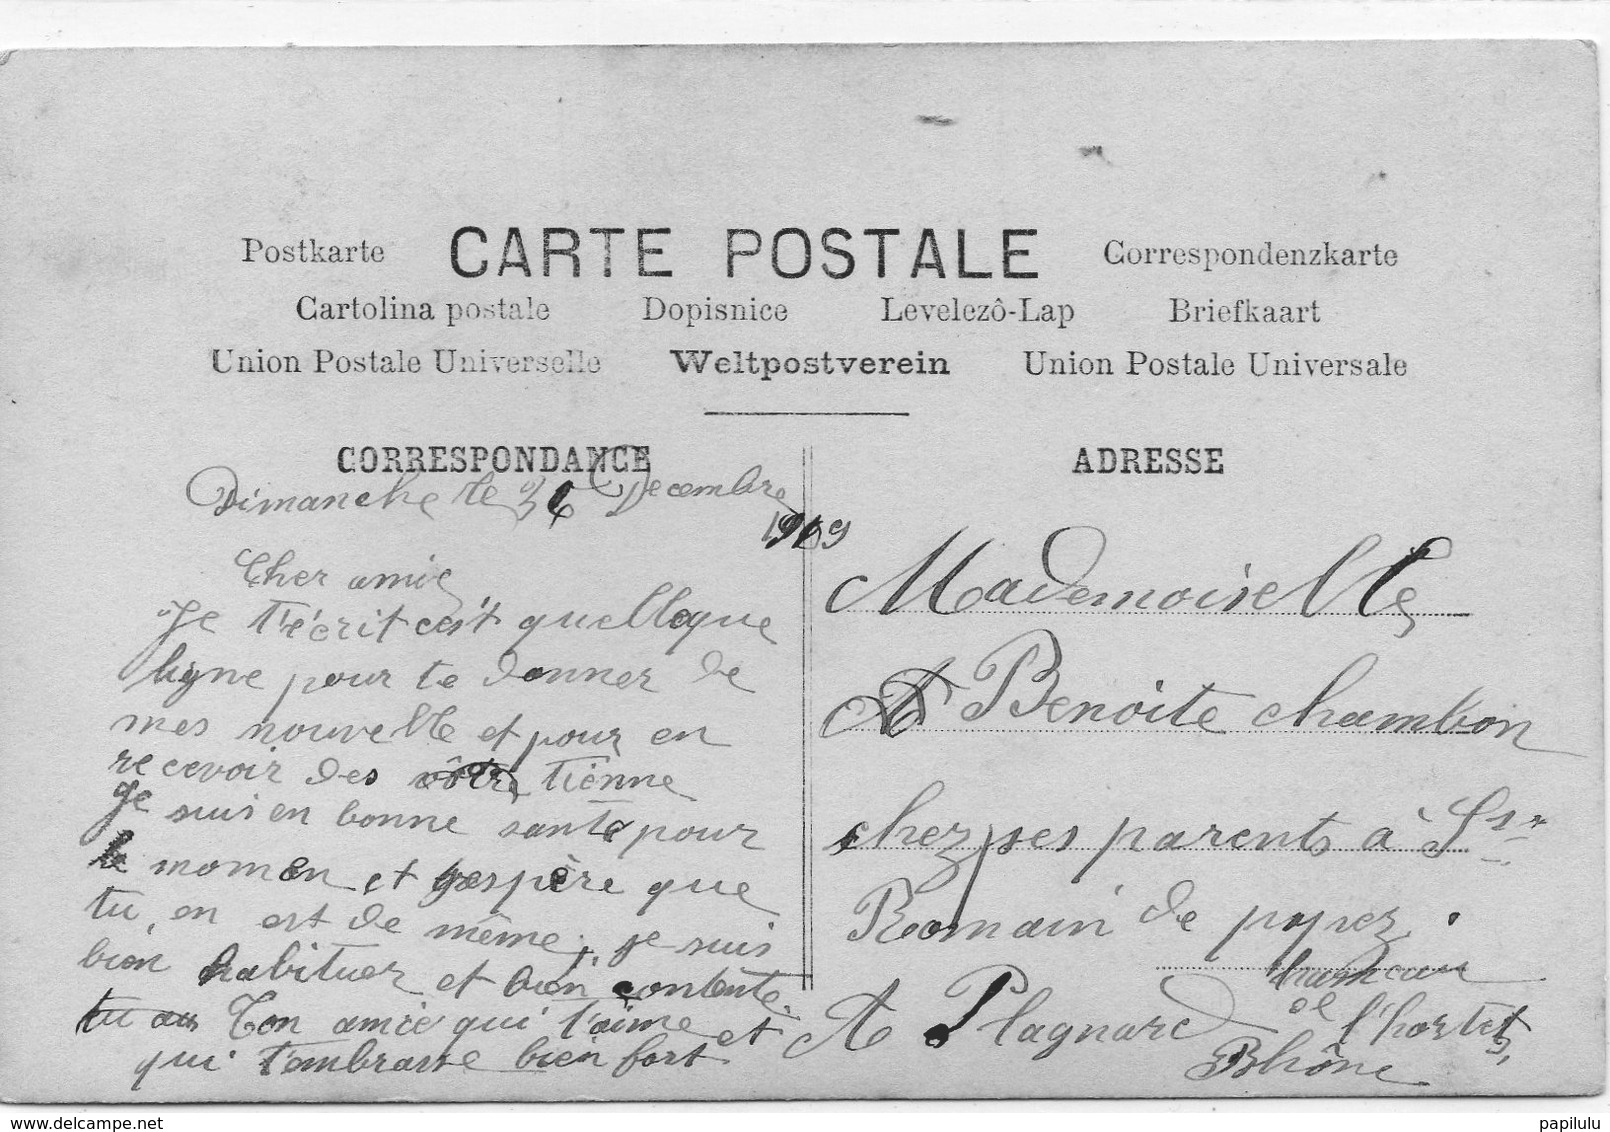 Postkarte CARTE POSTALE Correspondenzkarte
Cartolina postale Dopisnice Levelezô-Lap Briefkaart
Union Postale Universelle Weltpostverein Union Postale Universale
CORRESPONDANCE
Dimanche le Decembre
1909
Cher amie
Je t'écrit cest quelleque
ligne pour te donner de
mes nouvelle et pour en
recevoir des vôtre tienne
Je suis en bonne sante pour
le momen et j'espère que
tu en est de même, je suis
bien habituer et bien contente
tu as Ton amie qui t'aime et
qui t'embrasse bien fort
ADRESSE
Mademoiselle
Benoite chambon
chez ses parents à St
Romain de popez
hameau
de l'hortet
A Plagnard
Rhône
delcampe.net
papilulu